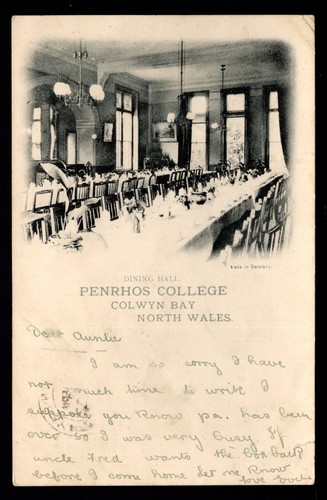 Made in Germany.
DINING HALL.
PENRHOS COLLEGE
COLWYN BAY
NORTH WALES.
Dear Auntie
I am so sorry I have
not much time to write I
suppose you know pa. has been
over so I was very busy If
uncle Fred wants the box back
before I come home let me know
love